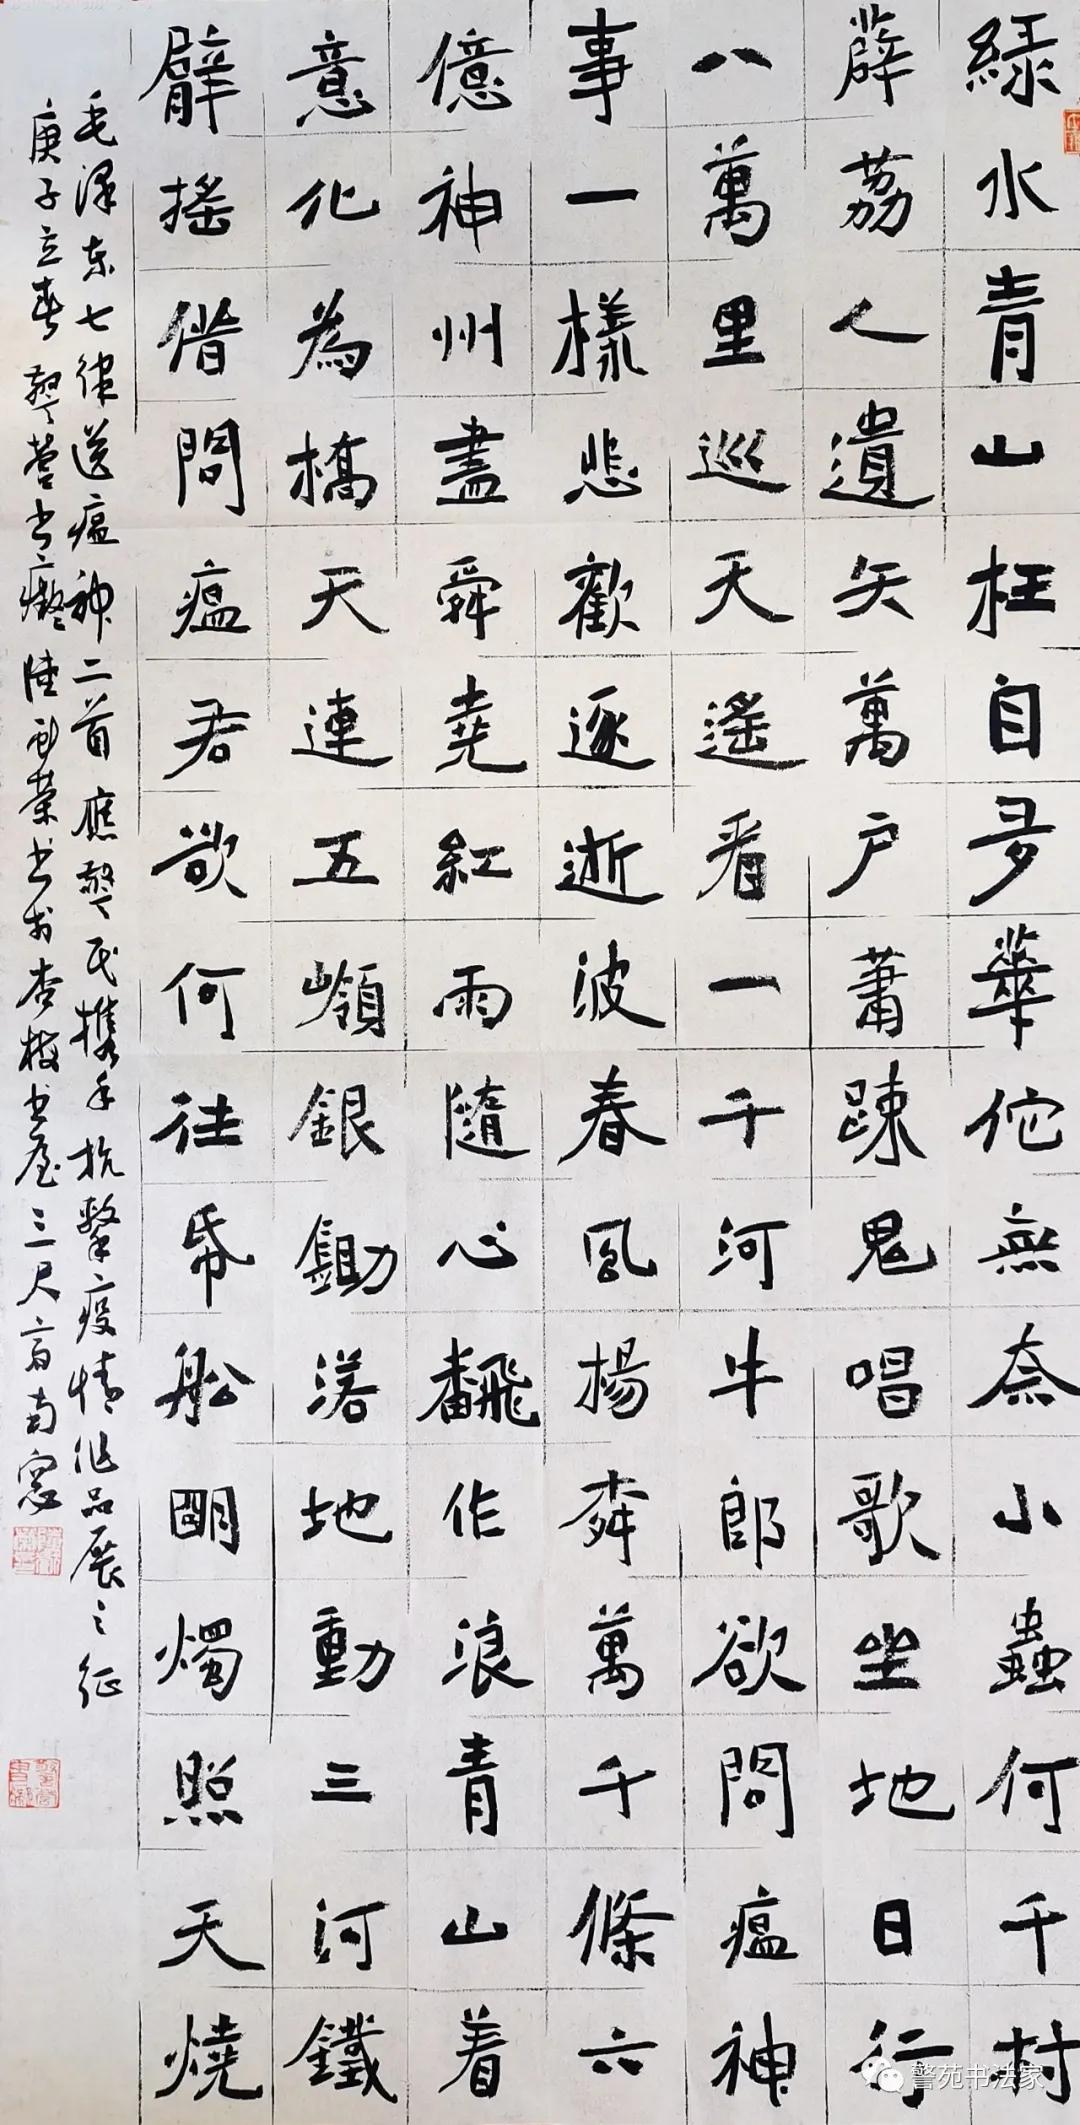 綠水青山枉自多華佗無奈小蟲何千村
薜荔人遺矢萬户蕭踈鬼唱歌坐地日行
八萬里巡天遙看一千河牛郎欲問瘟神
事一樣悲歡逐逝波春風楊柳萬千條六
億神州盡舜堯紅雨隨心飜作浪青山着
意化為橋天連五嶺銀鋤落地動三河鐵
臂搖借問瘟君欲何往帋船明燭照天燒
毛澤东七律送瘟神二首應警民攜手抗擊疫情作品展之征
庚子立春警營书癡陸榮书於杏書屋三尺齋南窗
警苑书法家